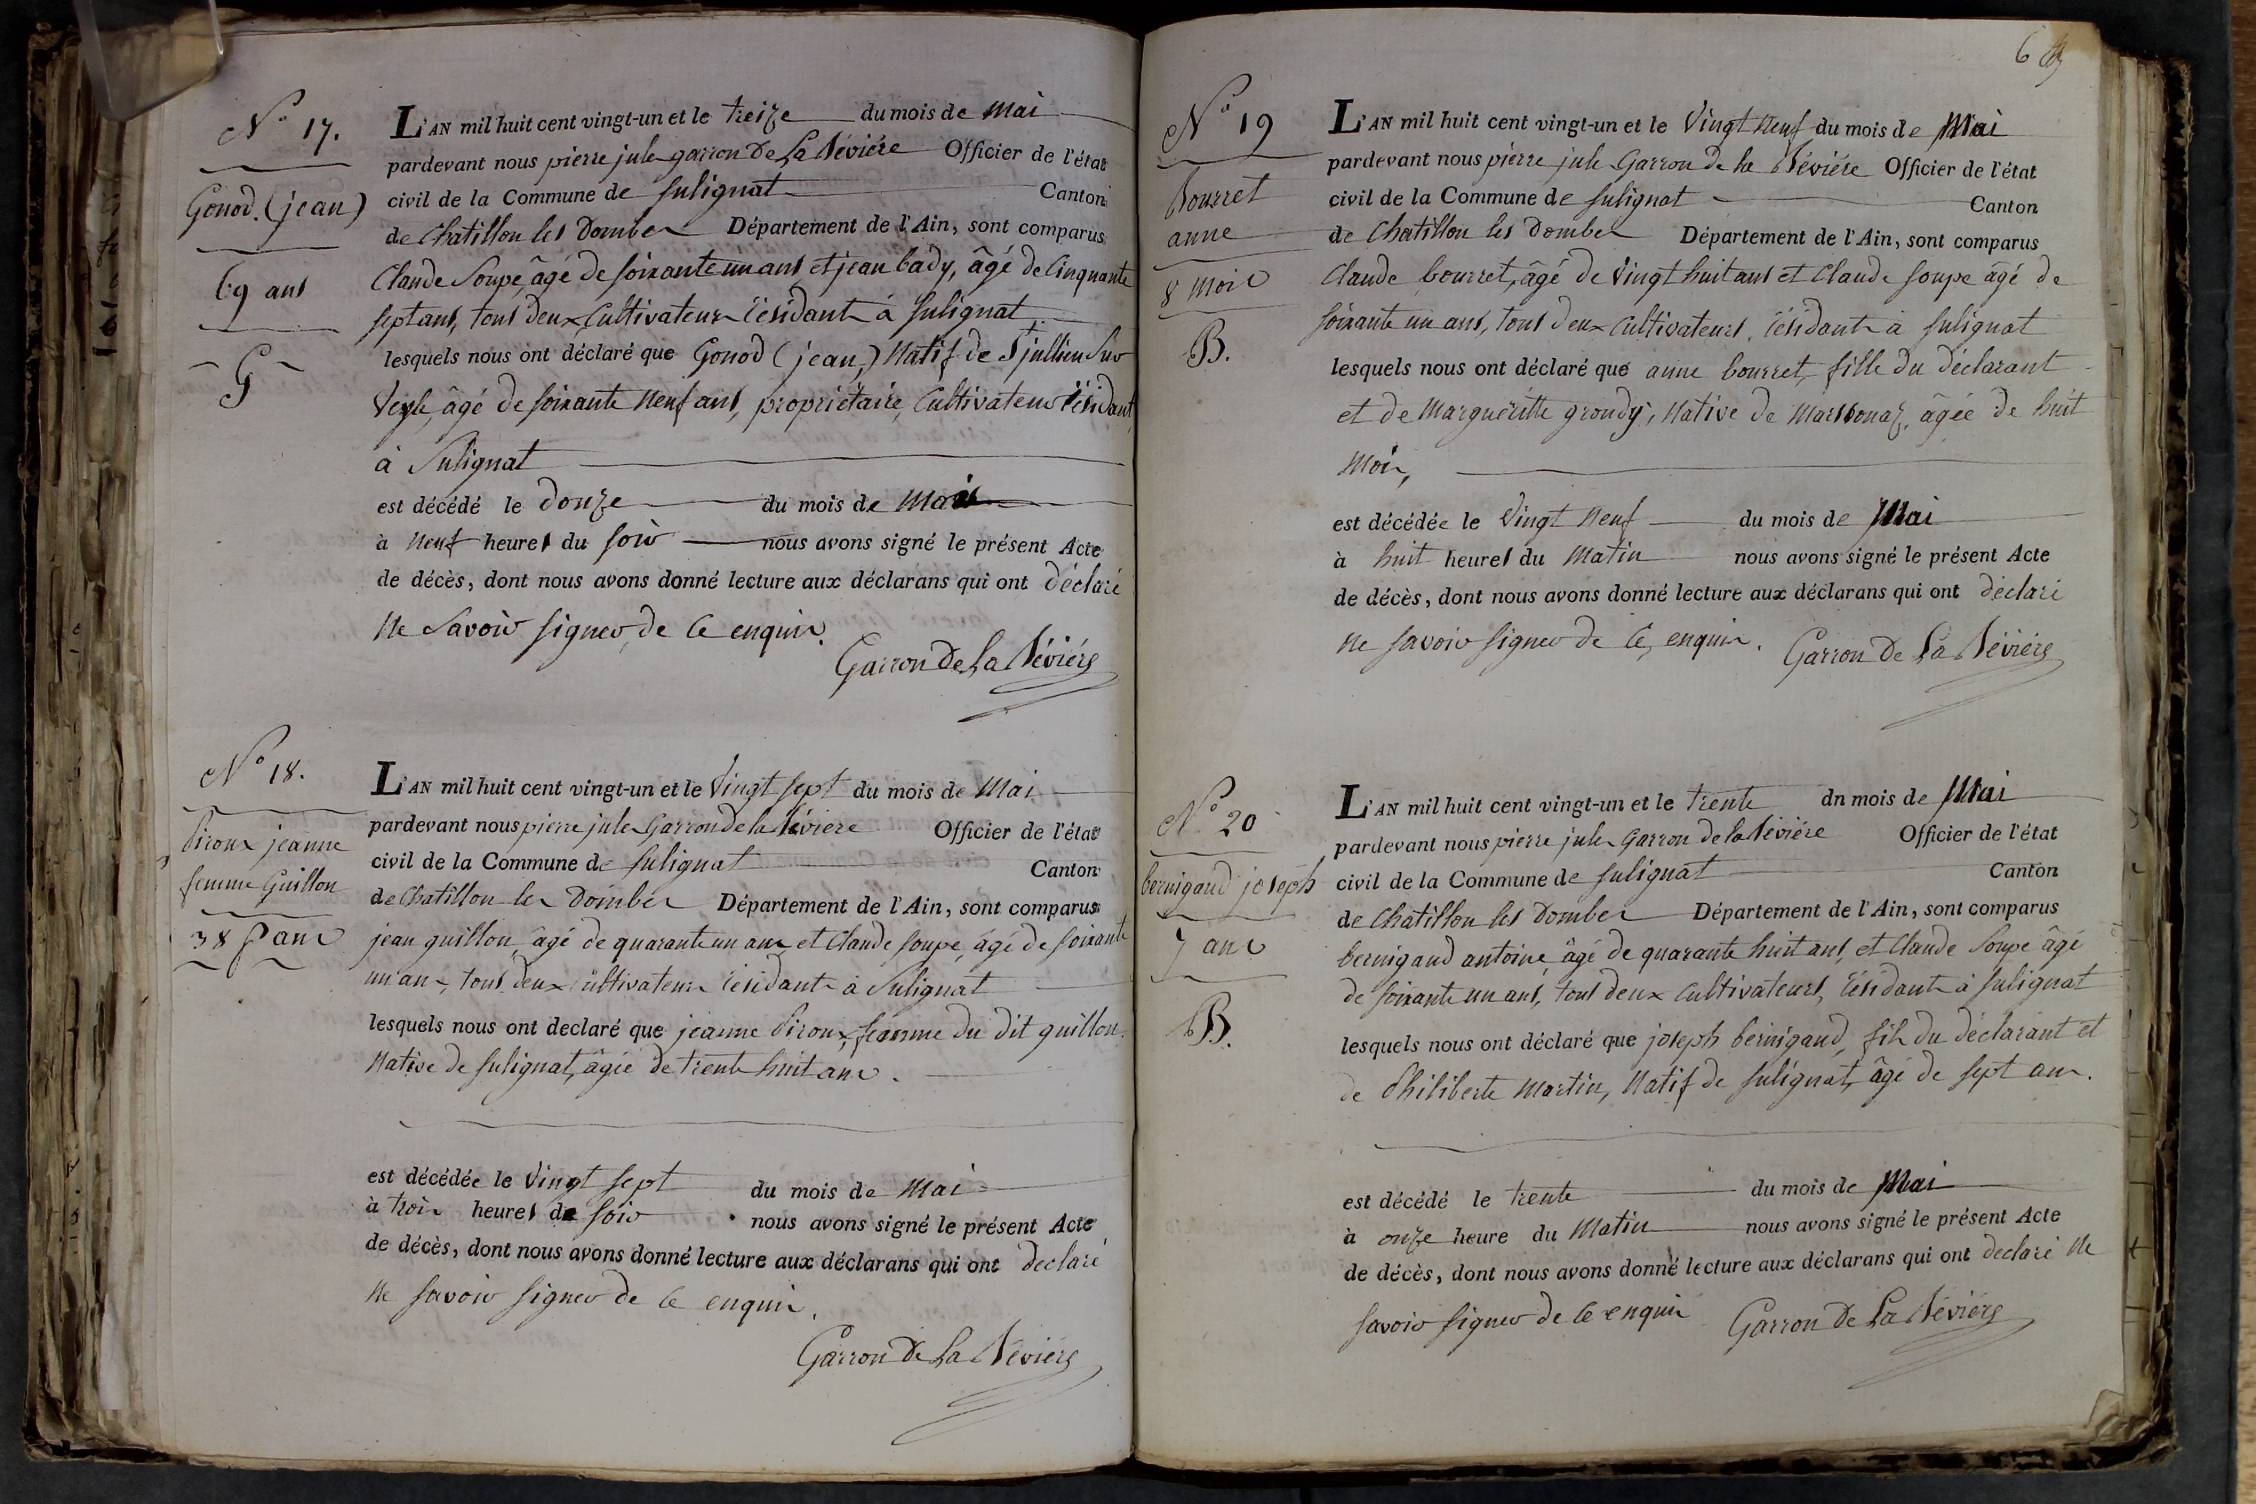 N.º 17.
Gonod. (jean)
69 ans
G
L'AN mil huit cent vingt-un et le treize du mois de mai
pardevant nous pierre jule garron De La Sévière Officier de l'état
civil de la Commune de Sulignat Canton
de Chatillon les Dombes Département de l'Ain, sont comparus
Claude Soupe, âgé de soixante un ans et jean bady, âgé de Cinquante
sept ans, tous deux Cultivateurs résidants à Sulignat
lesquels nous ont déclaré que Gonod (jean,) Natif de St jullien Sur
Veyle, âgé de soixante Neuf ans, propriétaire, Cultivateur résidant
à Sulignat
est décédé le Douze du mois de Mai
à Neuf heures du soir nous avons signé le présent Acte
de décès, dont nous avons donné lecture aux déclarans qui ont déclaré
Ne Savoir signer, de ce enquis.
Garron De La Sévière
N.º 18.
Piroux jeanne
femme Guillon
38 ans
L'AN mil huit cent vingt-un et le Vingt sept du mois de Mai
pardevant nous pierre jules Garron de la Sévière Officier de l'état
civil de la Commune de Sulignat Canton
de Chatillon les Dombes Département de l'Ain, sont comparus
jean guillon, âgé de quarante un ans et Claude soupe, âgé de soixante
un ans, tous deux cultivateurs résidants à Sulignat
lesquels nous ont declaré que jeanne Piroux, femme du dit guillon
Native de Sulignat, âgée de trente huit ans.
est décédée le Vingt sept du mois de Mai
à trois heures de soir nous avons signé le présent Acte
de décès, dont nous avons donné lecture aux déclarans qui ont declaré
Ne savoir signer de ce enquis.
Garron De La Sévière
6
N.º 19
Bourret
anne
8 mois
B.
L'AN mil huit cent vingt-un et le Vingt Neuf du mois de Mai
pardevant nous pierre jule Garron de la Sévière Officier de l'état
civil de la Commune de Sulignat Canton
de Chatillon les Dombes Département de l'Ain, sont comparus
Claude bourret, âgé de Vingt huit ans et Claude soupe âgé de
soixante un ans, tous deux Cultivateurs, résidants à Sulignat
lesquels nous ont déclaré que anne bourret, fille du déclarant
et de Marguéritte grondy, Native de Marsonaz, âgée de huit
Mois,
est décédée le Vingt Neuf du mois de Mai
à huit heures du Matin nous avons signé le présent Acte
de décès, dont nous avons donné lecture aux déclarans qui ont déclaré
Ne savoir signer de ce, enquis. Garron De La Sévière
N.º 20
bernigaud joseph
7 ans
B.
L'AN mil huit cent vingt-un et le trente dn mois de Mai
pardevant nous pierre jules Garron de la Sévière Officier de l'état
civil de la Commune de Sulignat Canton
de Chatillon les Dombes Département de l'Ain, sont comparus
bernigaud antoine, âgé de quarante huit ans, et Claude Soupe âgé
de soixante un ans, tous deux Cultivateurs, résidants à Sulignat
lesquels nous ont déclaré que joseph bernigaud, fils du déclarant et
de Philiberte Martin, Natif de Sulignat, âgé de sept ans.
est décédé le trente du mois de Mai
à onze heure du Matin nous avons signé le présent Acte
de décès, dont nous avons donné lecture aux déclarans qui ont declaré Ne
savoir signer de ce enquis Garron De La Sévière